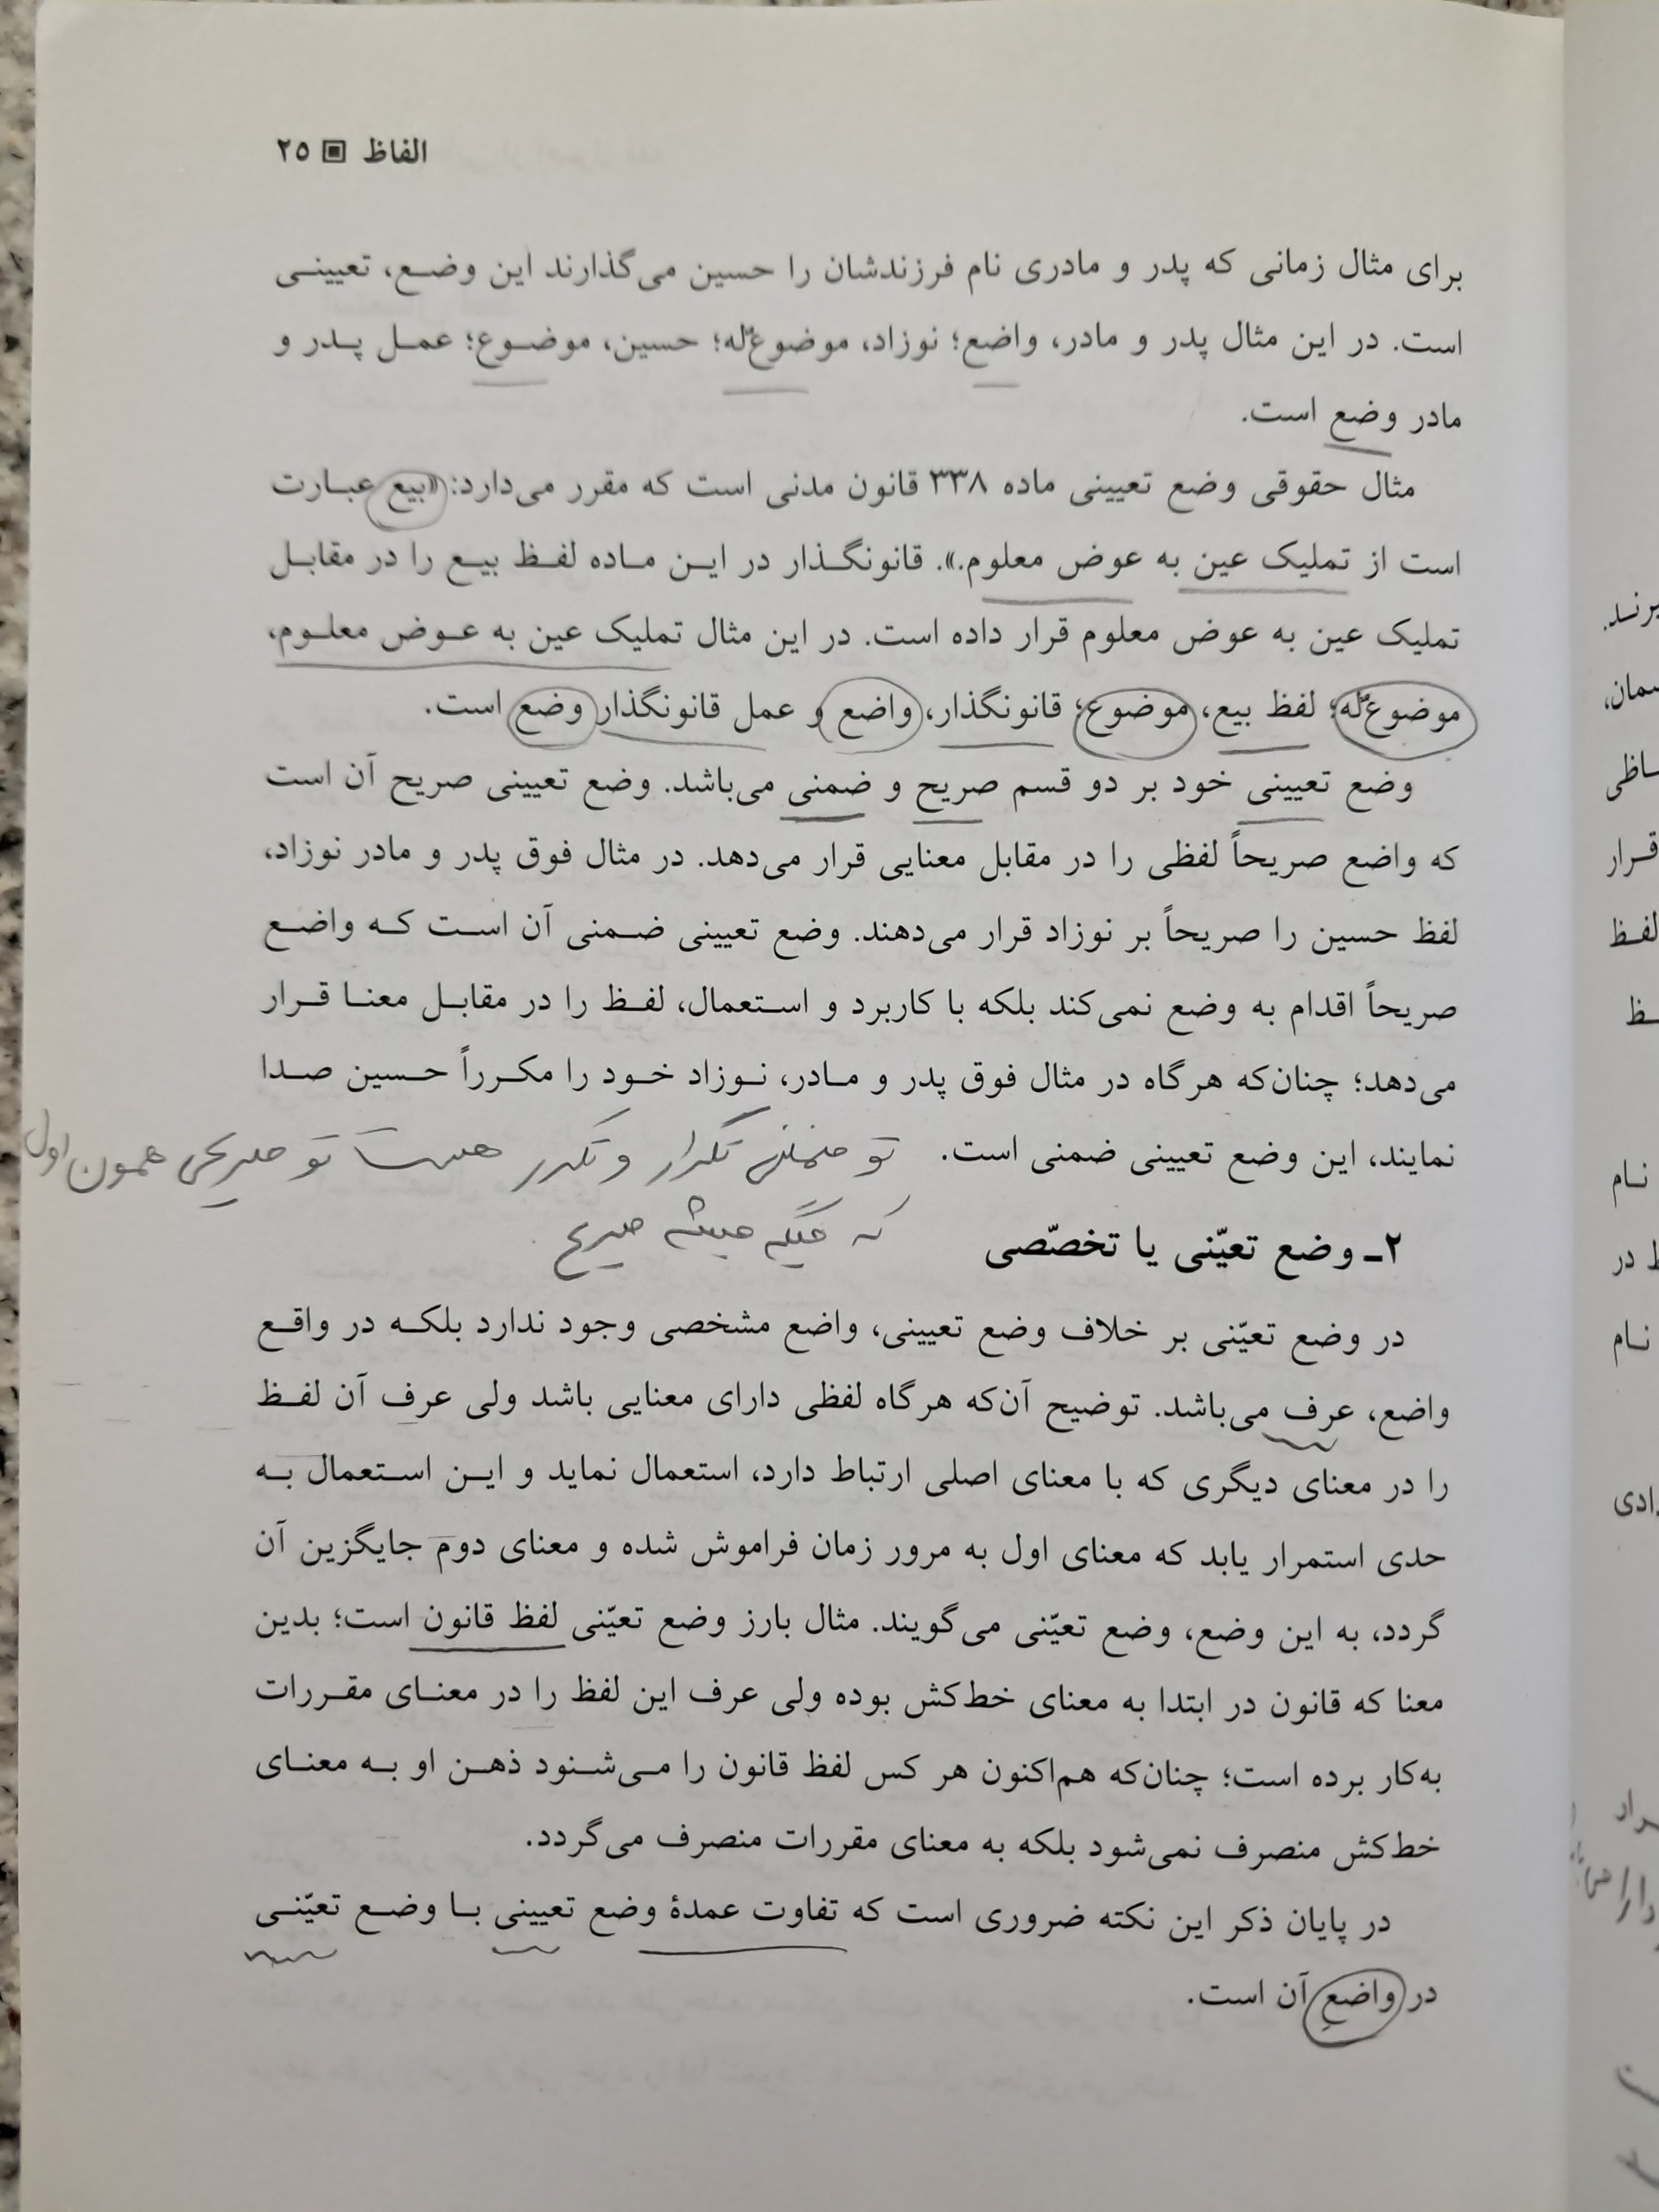 الفاظ ▣ ۲۵
برای مثال زمانی که پدر و مادری نام فرزندشان را حسین می‌گذارند این وضع، تعیینی
است. در این مثال پدر و مادر، واضع؛ نوزاد، موضوعٌ‌له؛ حسین، موضوع؛ عمل پدر و
مادر وضع است.
مثال حقوقی وضع تعیینی ماده ۳۳۸ قانون مدنی است که مقرر می‌دارد: «بیع عبارت
است از تملیک عین به عوض معلوم.». قانونگذار در این ماده لفظ بیع را در مقابل
تملیک عین به عوض معلوم قرار داده است. در این مثال تملیک عین به عوض معلوم،
موضوعٌ‌له؛ لفظ بیع، موضوع؛ قانونگذار، واضع و عمل قانونگذار وضع است.
وضع تعیینی خود بر دو قسم صریح و ضمنی می‌باشد. وضع تعیینی صریح آن است
که واضع صریحاً لفظی را در مقابل معنایی قرار می‌دهد. در مثال فوق پدر و مادر نوزاد،
لفظ حسین را صریحاً بر نوزاد قرار می‌دهند. وضع تعیینی ضمنی آن است که واضع
صریحاً اقدام به وضع نمی‌کند بلکه با کاربرد و استعمال، لفظ را در مقابل معنا قرار
می‌دهد؛ چنان‌که هرگاه در مثال فوق پدر و مادر، نوزاد خود را مکرراً حسین صدا
نمایند، این وضع تعیینی ضمنی است. تو ضمنی تکرار و تکرر هست تو صریحی همون اول
که میگه میشه صریح
۲ـ وضع تعیّنی یا تخصّصی
در وضع تعیّنی بر خلاف وضع تعیینی، واضع مشخصی وجود ندارد بلکه در واقع
واضع، عرف می‌باشد. توضیح آن‌که هرگاه لفظی دارای معنایی باشد ولی عرف آن لفظ
را در معنای دیگری که با معنای اصلی ارتباط دارد، استعمال نماید و این استعمال به
حدی استمرار یابد که معنای اول به مرور زمان فراموش شده و معنای دوم جایگزین آن
گردد، به این وضع، وضع تعیّنی می‌گویند. مثال بارز وضع تعیّنی لفظ قانون است؛ بدین
معنا که قانون در ابتدا به معنای خط‌کش بوده ولی عرف این لفظ را در معنای مقررات
به‌کار برده است؛ چنان‌که هم‌اکنون هر کس لفظ قانون را می‌شنود ذهن او به معنای
خط‌کش منصرف نمی‌شود بلکه به معنای مقررات منصرف می‌گردد.
در پایان ذکر این نکته ضروری است که تفاوت عمدهٔ وضع تعیینی با وضع تعیّنی
در واضعِ آن است.